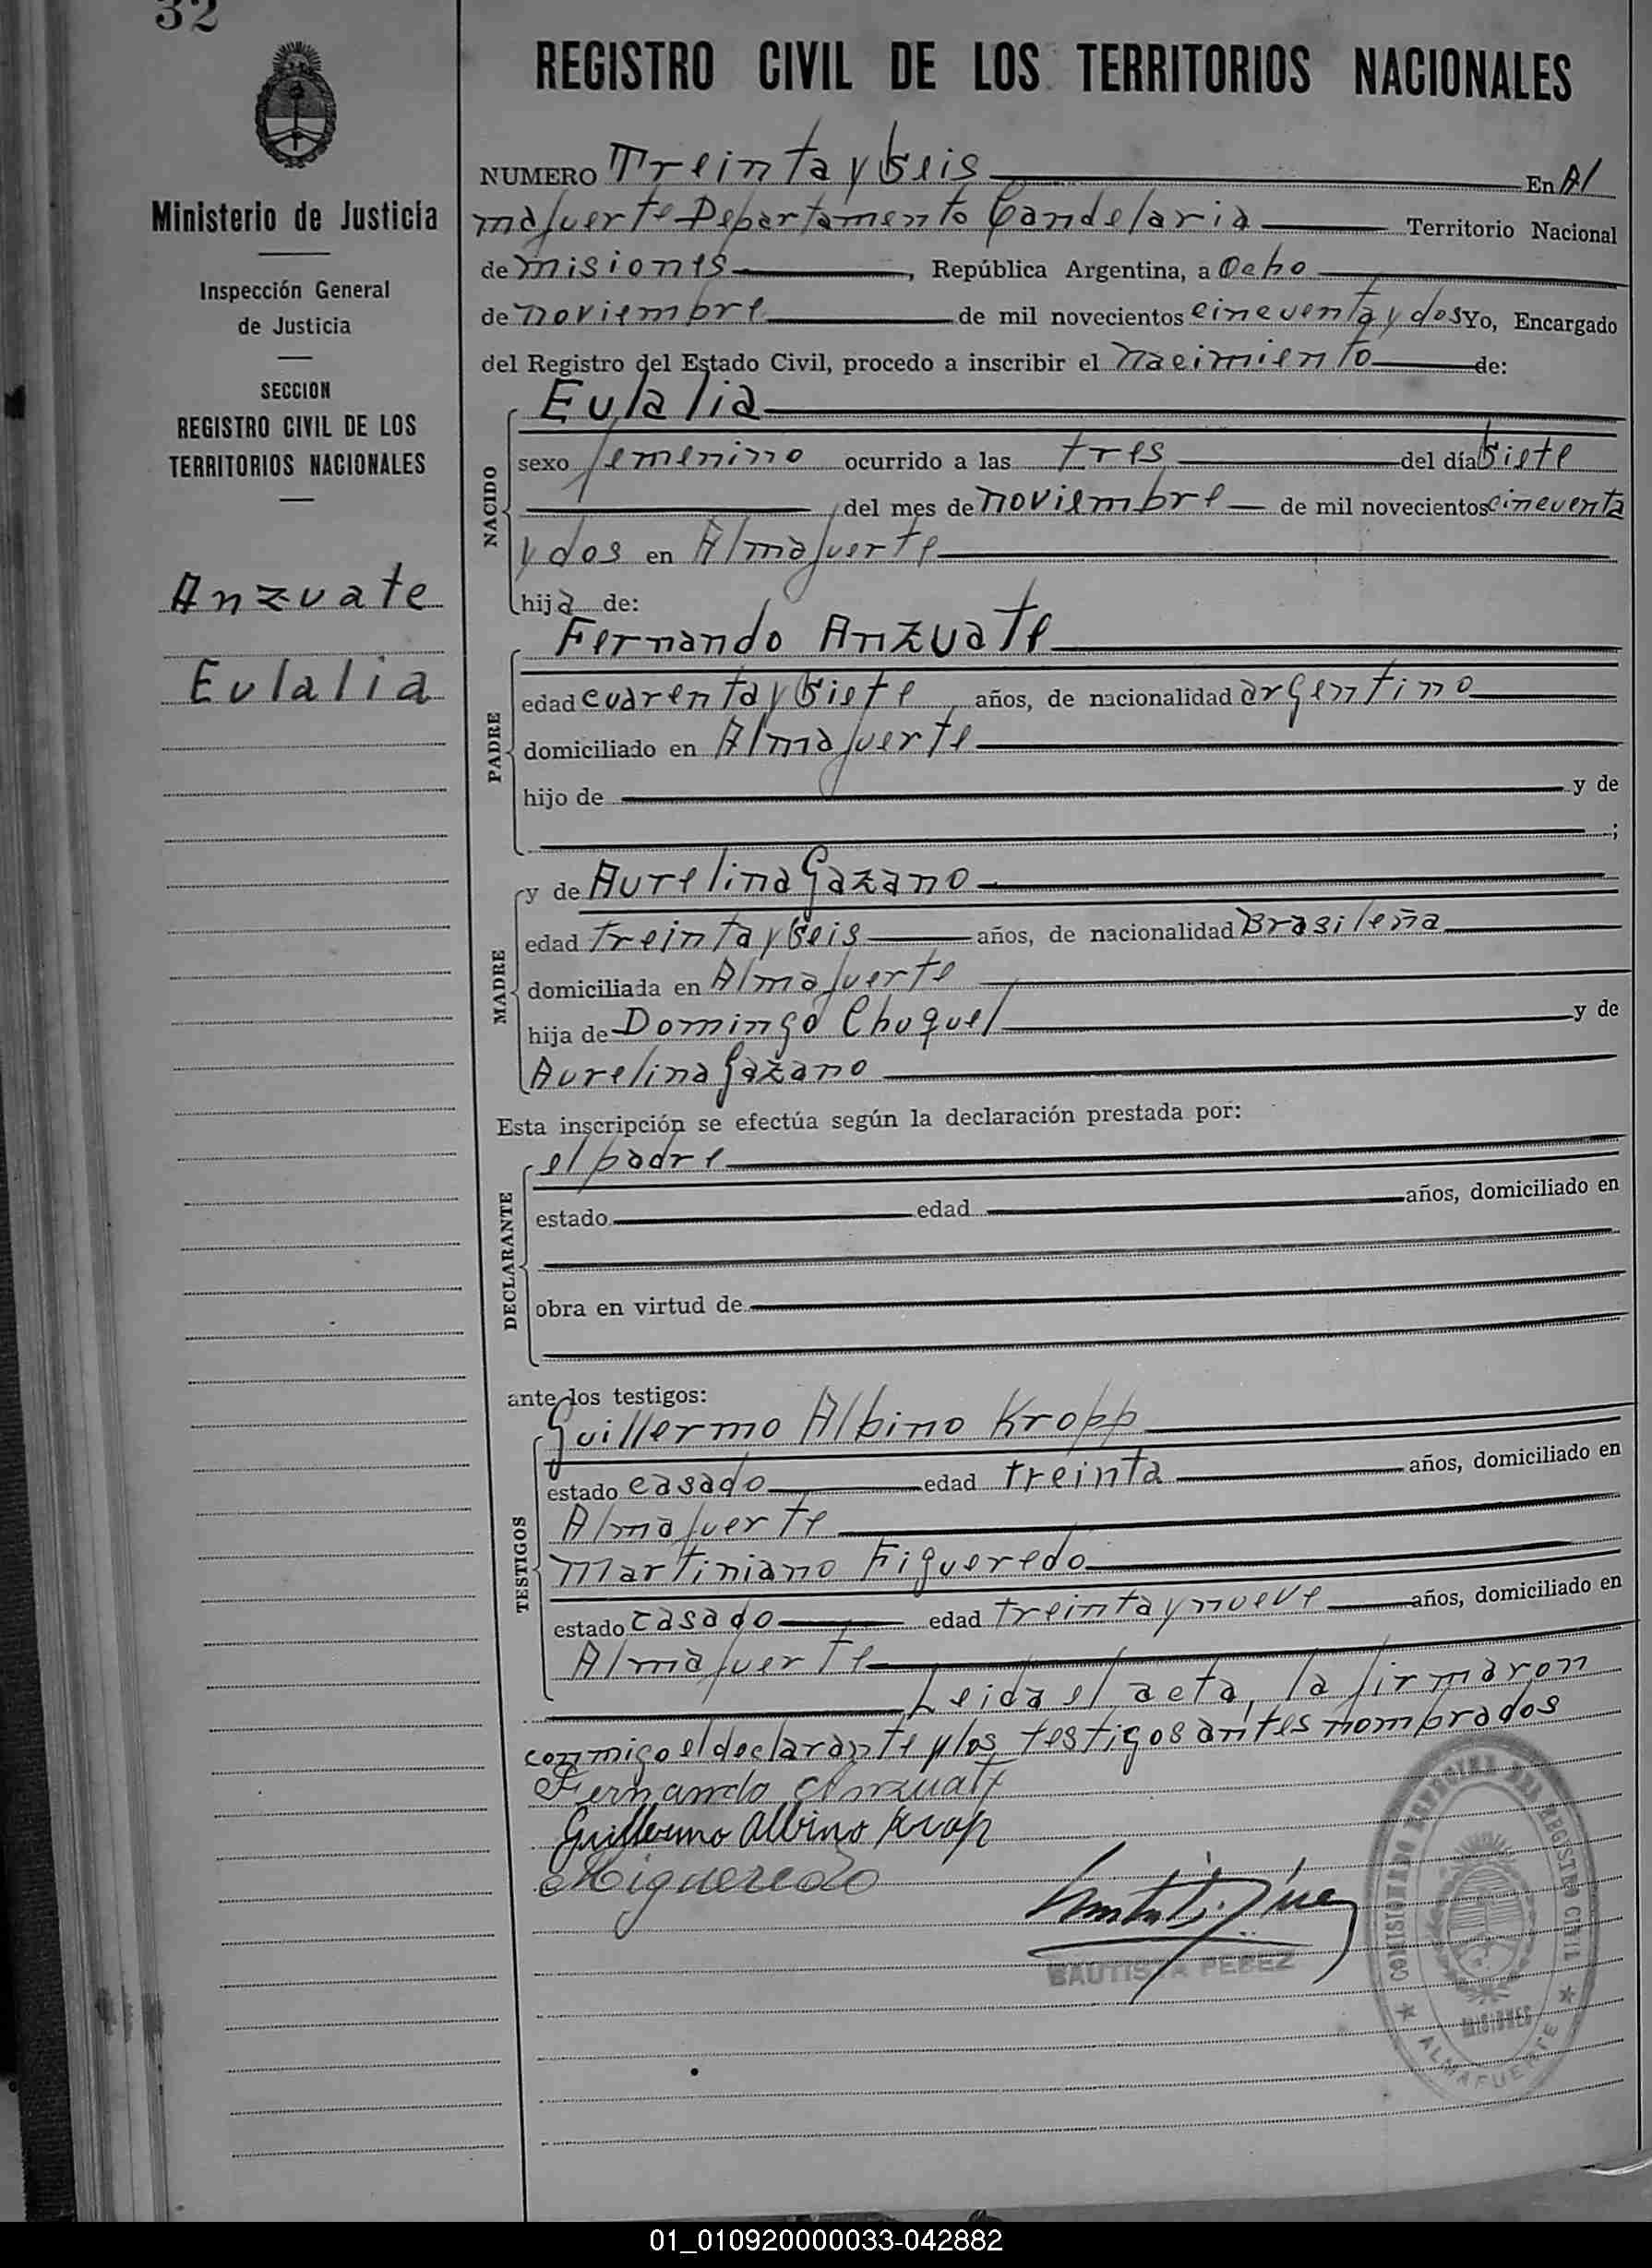 32
REGISTRO CIVIL DE LOS TERRITORIOS NACIONALES
Ministerio de Justicia
Inspección General
de Justicia
SECCION
REGISTRO CIVIL DE LOS
TERRITORIOS NACIONALES
Anzuate
Eulalia
NUMERO Treinta y seis En Al
mafuerte Departamento Candelaria Territorio Nacional
de misiones, República Argentina, a ocho
de noviembre de mil novecientos cincuenta y dos Yo, Encargado
del Registro del Estado Civil, procedo a inscribir el nacimiento de:
NACIDO
Eulalia
sexo femenino ocurrido a las tres del día siete
del mes de noviembre de mil novecientos cincuenta
y dos en Almafuerte
hija de:
PADRE
Fernando Anzuate
edad cuarenta y siete años, de nacionalidad argentino
domiciliado en Almafuerte
hijo de y de
;
MADRE
y de Aurelina Gazano
edad treinta y seis años, de nacionalidad Brasileña
domiciliada en Almafuerte
hija de Domingo Chuquel y de
Aurelina Gazano
Esta inscripción se efectúa según la declaración prestada por:
DECLARANTE
el padre
estado edad años, domiciliado en
obra en virtud de
ante los testigos:
TESTIGOS
Guillermo Albino Kropp
estado casado edad treinta años, domiciliado en
Almafuerte
Martiniano Figueredo
estado casado edad treinta y nueve años, domiciliado en
Almafuerte
Leida el acta, la firmaron
conmigo el declarante y los testigos antes nombrados
Fernando Anzuate
Guillermo Albino Krop
MFigueredo
BAUTISTA PEREZ
REGISTRO CIVIL
MISIONES
★ ALMAFUERTE ★
01_010920000033-042882